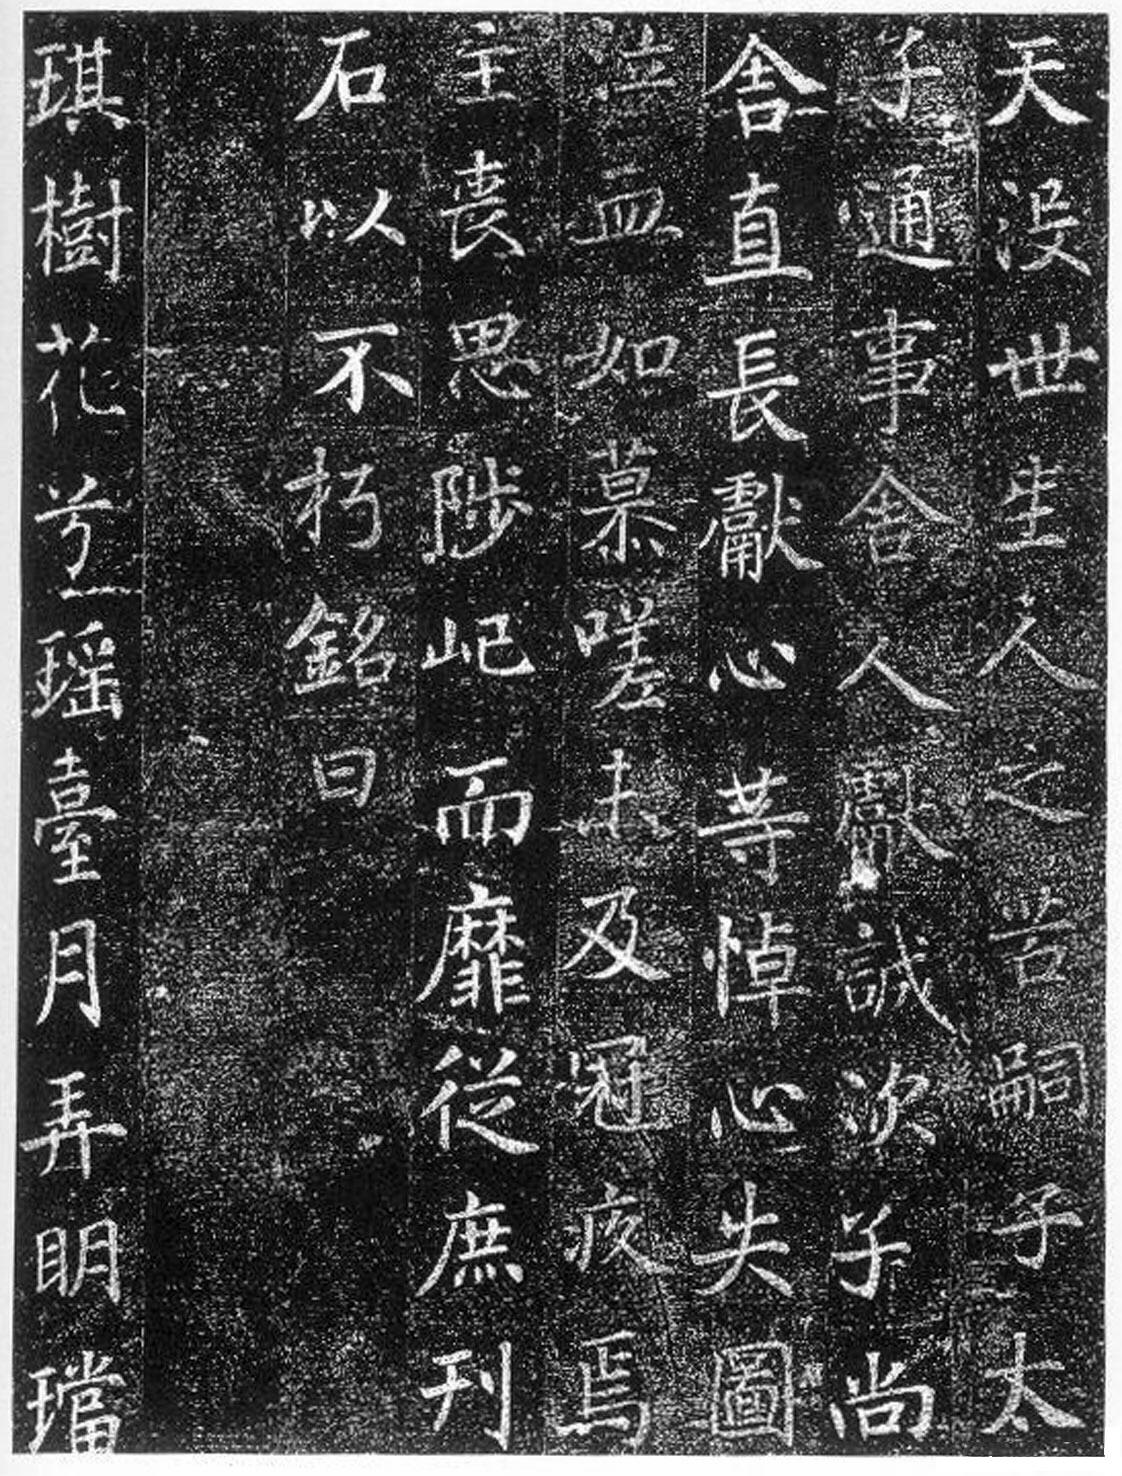 天没世生人之苦嗣子太
子通事舍人獻誠次子尚
舍直長獻心等悼心失圖
泣血如慕嗟未及冠疚焉
主喪思陟屺而靡從庶刊
石以不朽銘曰
琪樹花兮瑶臺月弄明璫